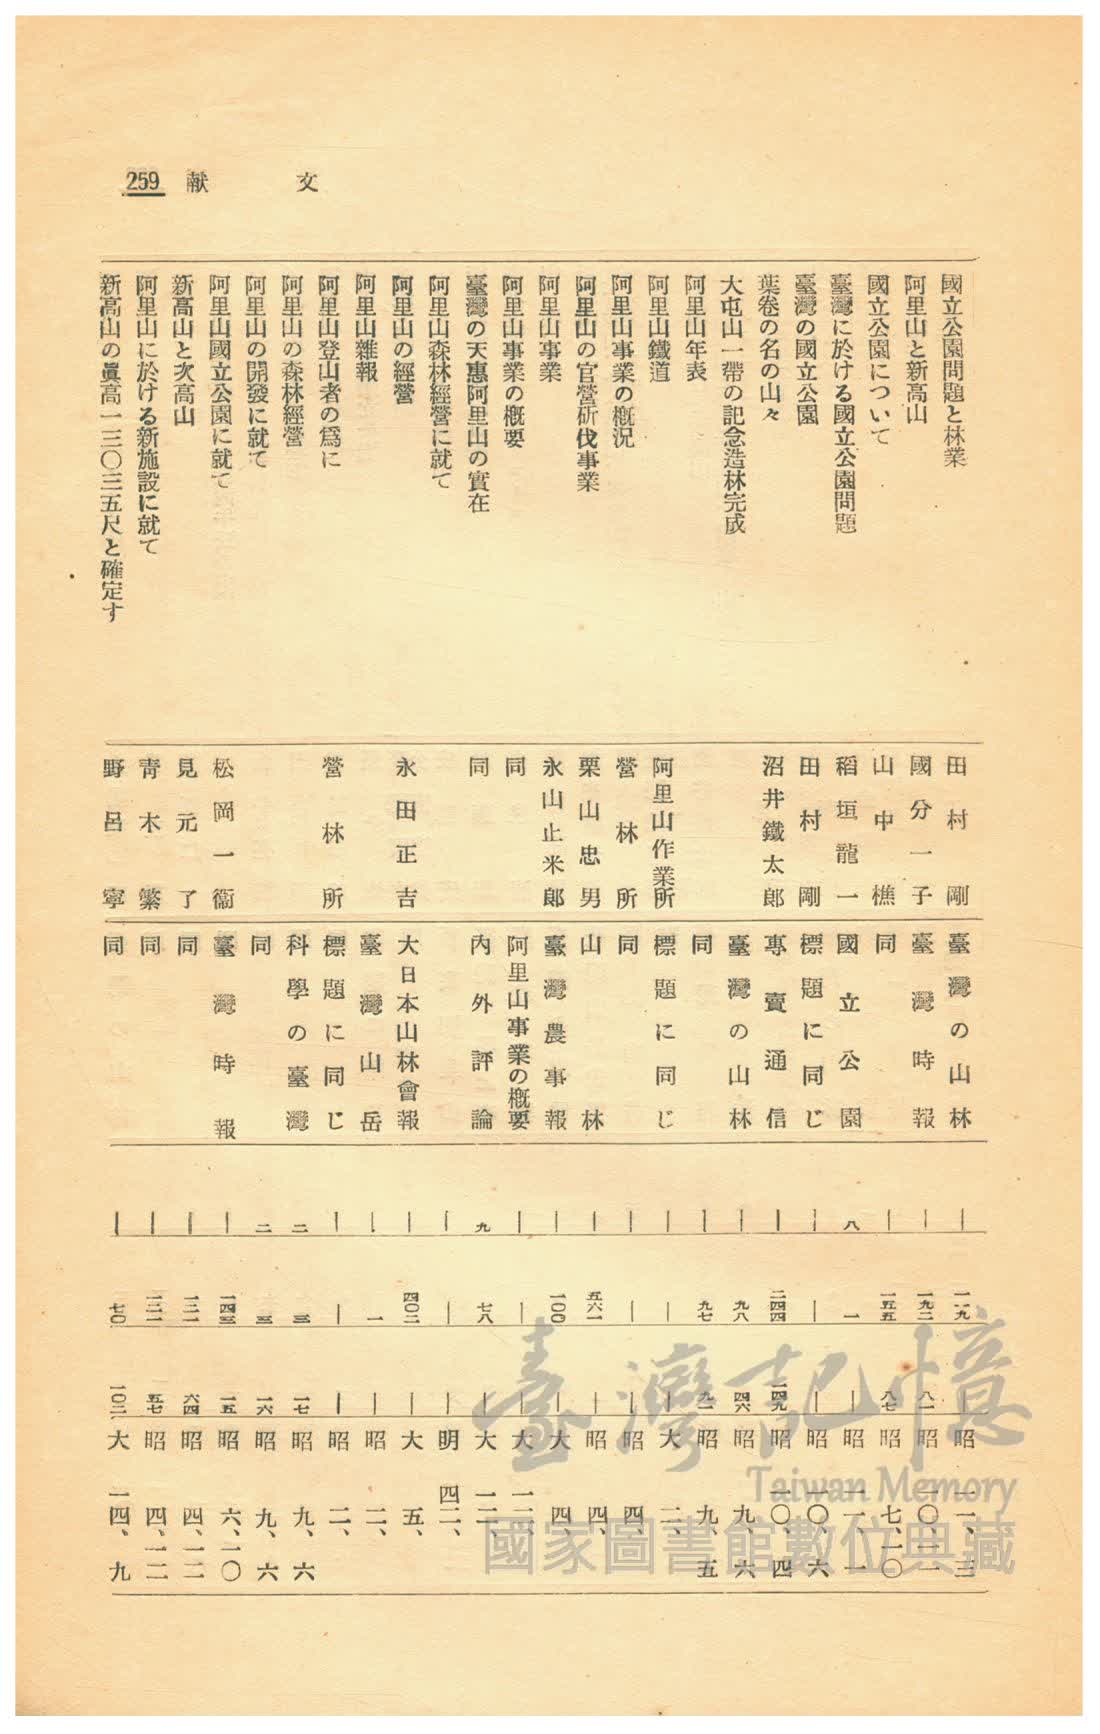 文献 259
國立公園問題と林業 田村剛 臺灣の山林 ― 一一九 ― 昭一一、三
阿里山と新高山 國分一子 臺灣時報 ― 一九二 八一 昭一〇、一一
國立公園について 山中樵 同 ― 一五五 八七 昭七、一〇
臺灣に於ける國立公園問題 稻垣龍一 國立公園 八 一 ― 昭一一、一
臺灣の國立公園 田村剛 標題に同じ ― ― ― 昭一〇、六
葉卷の名の山々 沼井鐵太郎 專賣通信 ― 二四四 一四九 昭一〇、四
大屯山一帶の記念造林完成 臺灣の山林 ― 九八 四六 昭九、六
阿里山年表 同 ― 九七 九一 昭九、五
阿里山鐵道 阿里山作業所 標題に同じ ― ― ― 大二、
阿里山事業の槪況 營林所 同 ― ― ― 昭四、
阿里山の官營斫伐事業 栗山忠男 山林 ― 五六一 ― 昭四、
阿里山事業 永山止米郎 臺灣農事報 ― 一〇〇 ― 大四、
阿里山事業の槪要 同 阿里山事業の槪要 ― ― ― 大一二、
臺灣の天惠阿里山の實在 同 內外評論 九 七八 ― 大一二、
阿里山森林經營に就て ― ― ― 明四二、
阿里山の經營 永田正吉 大日本山林會報 ― 四〇二 ― 大五、
阿里山雜報 臺灣山岳 ― 一 ― 昭二、
阿里山登山者の爲に 營林所 標題に同じ ― ― ― 昭二、
阿里山の森林經營 科學の臺灣 二 三 一七 昭九、六
阿里山の開發に就て 同 二 三 一六 昭九、六
阿里山國立公園に就て 松岡一衞 臺灣時報 ― 一四三 一五 昭六、一〇
新高山と次高山 見元了 同 ― 一二一 六四 昭四、一二
阿里山に於ける新施設に就て 青木繁 同 ― 一二一 五七 昭四、一二
新高山の眞高一三〇三五尺と確定す 野呂寧 同 ― 七〇 一〇二 大一四、九
臺灣記憶
Taiwan Memory
國家圖書館數位典藏